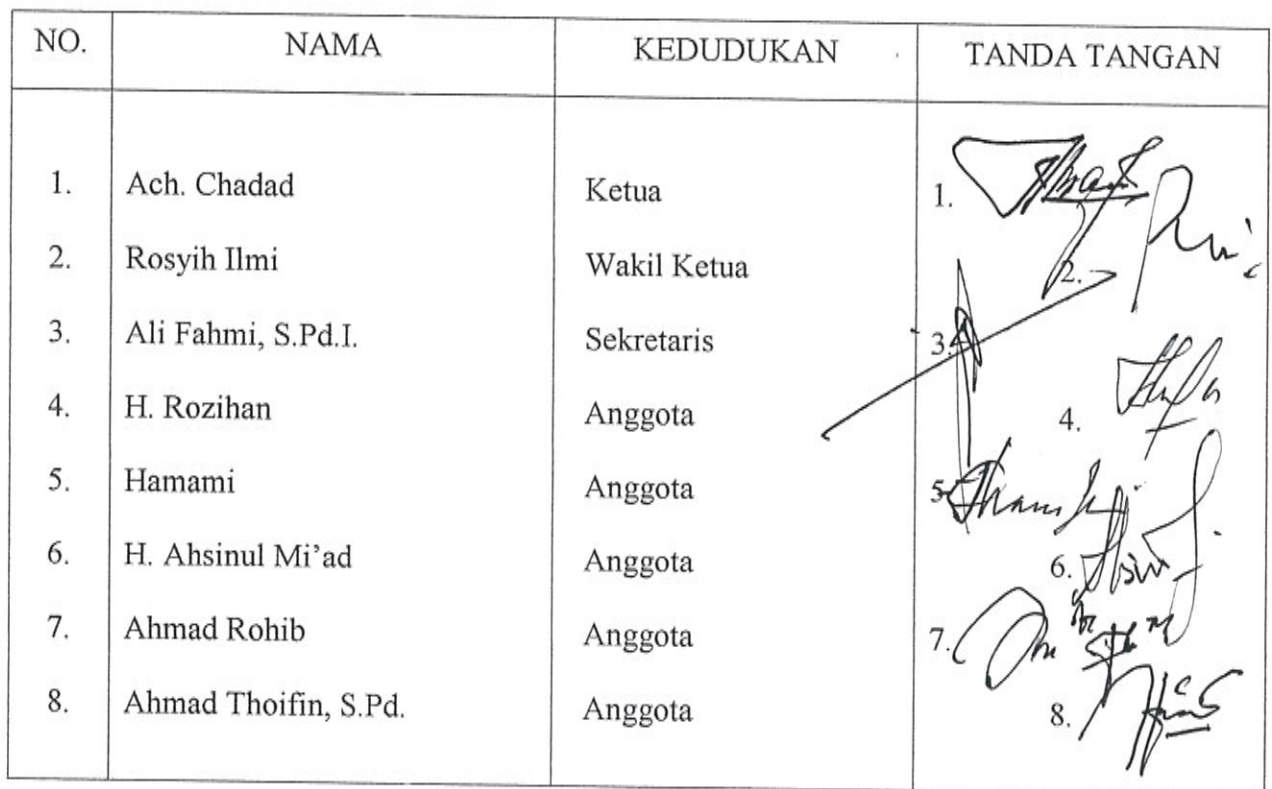 NO. NAMA KEDUDUKAN TANDA TANGAN
1. Ach. Chadad Ketua 1.
2. Rosyih Ilmi Wakil Ketua 2.
3. Ali Fahmi, S.Pd.I. Sekretaris 3.
4. H. Rozihan Anggota 4.
5. Hamami Anggota 5.
6. H. Ahsinul Mi’ad Anggota 6.
7. Ahmad Rohib Anggota 7.
8. Ahmad Thoifin, S.Pd. Anggota 8.